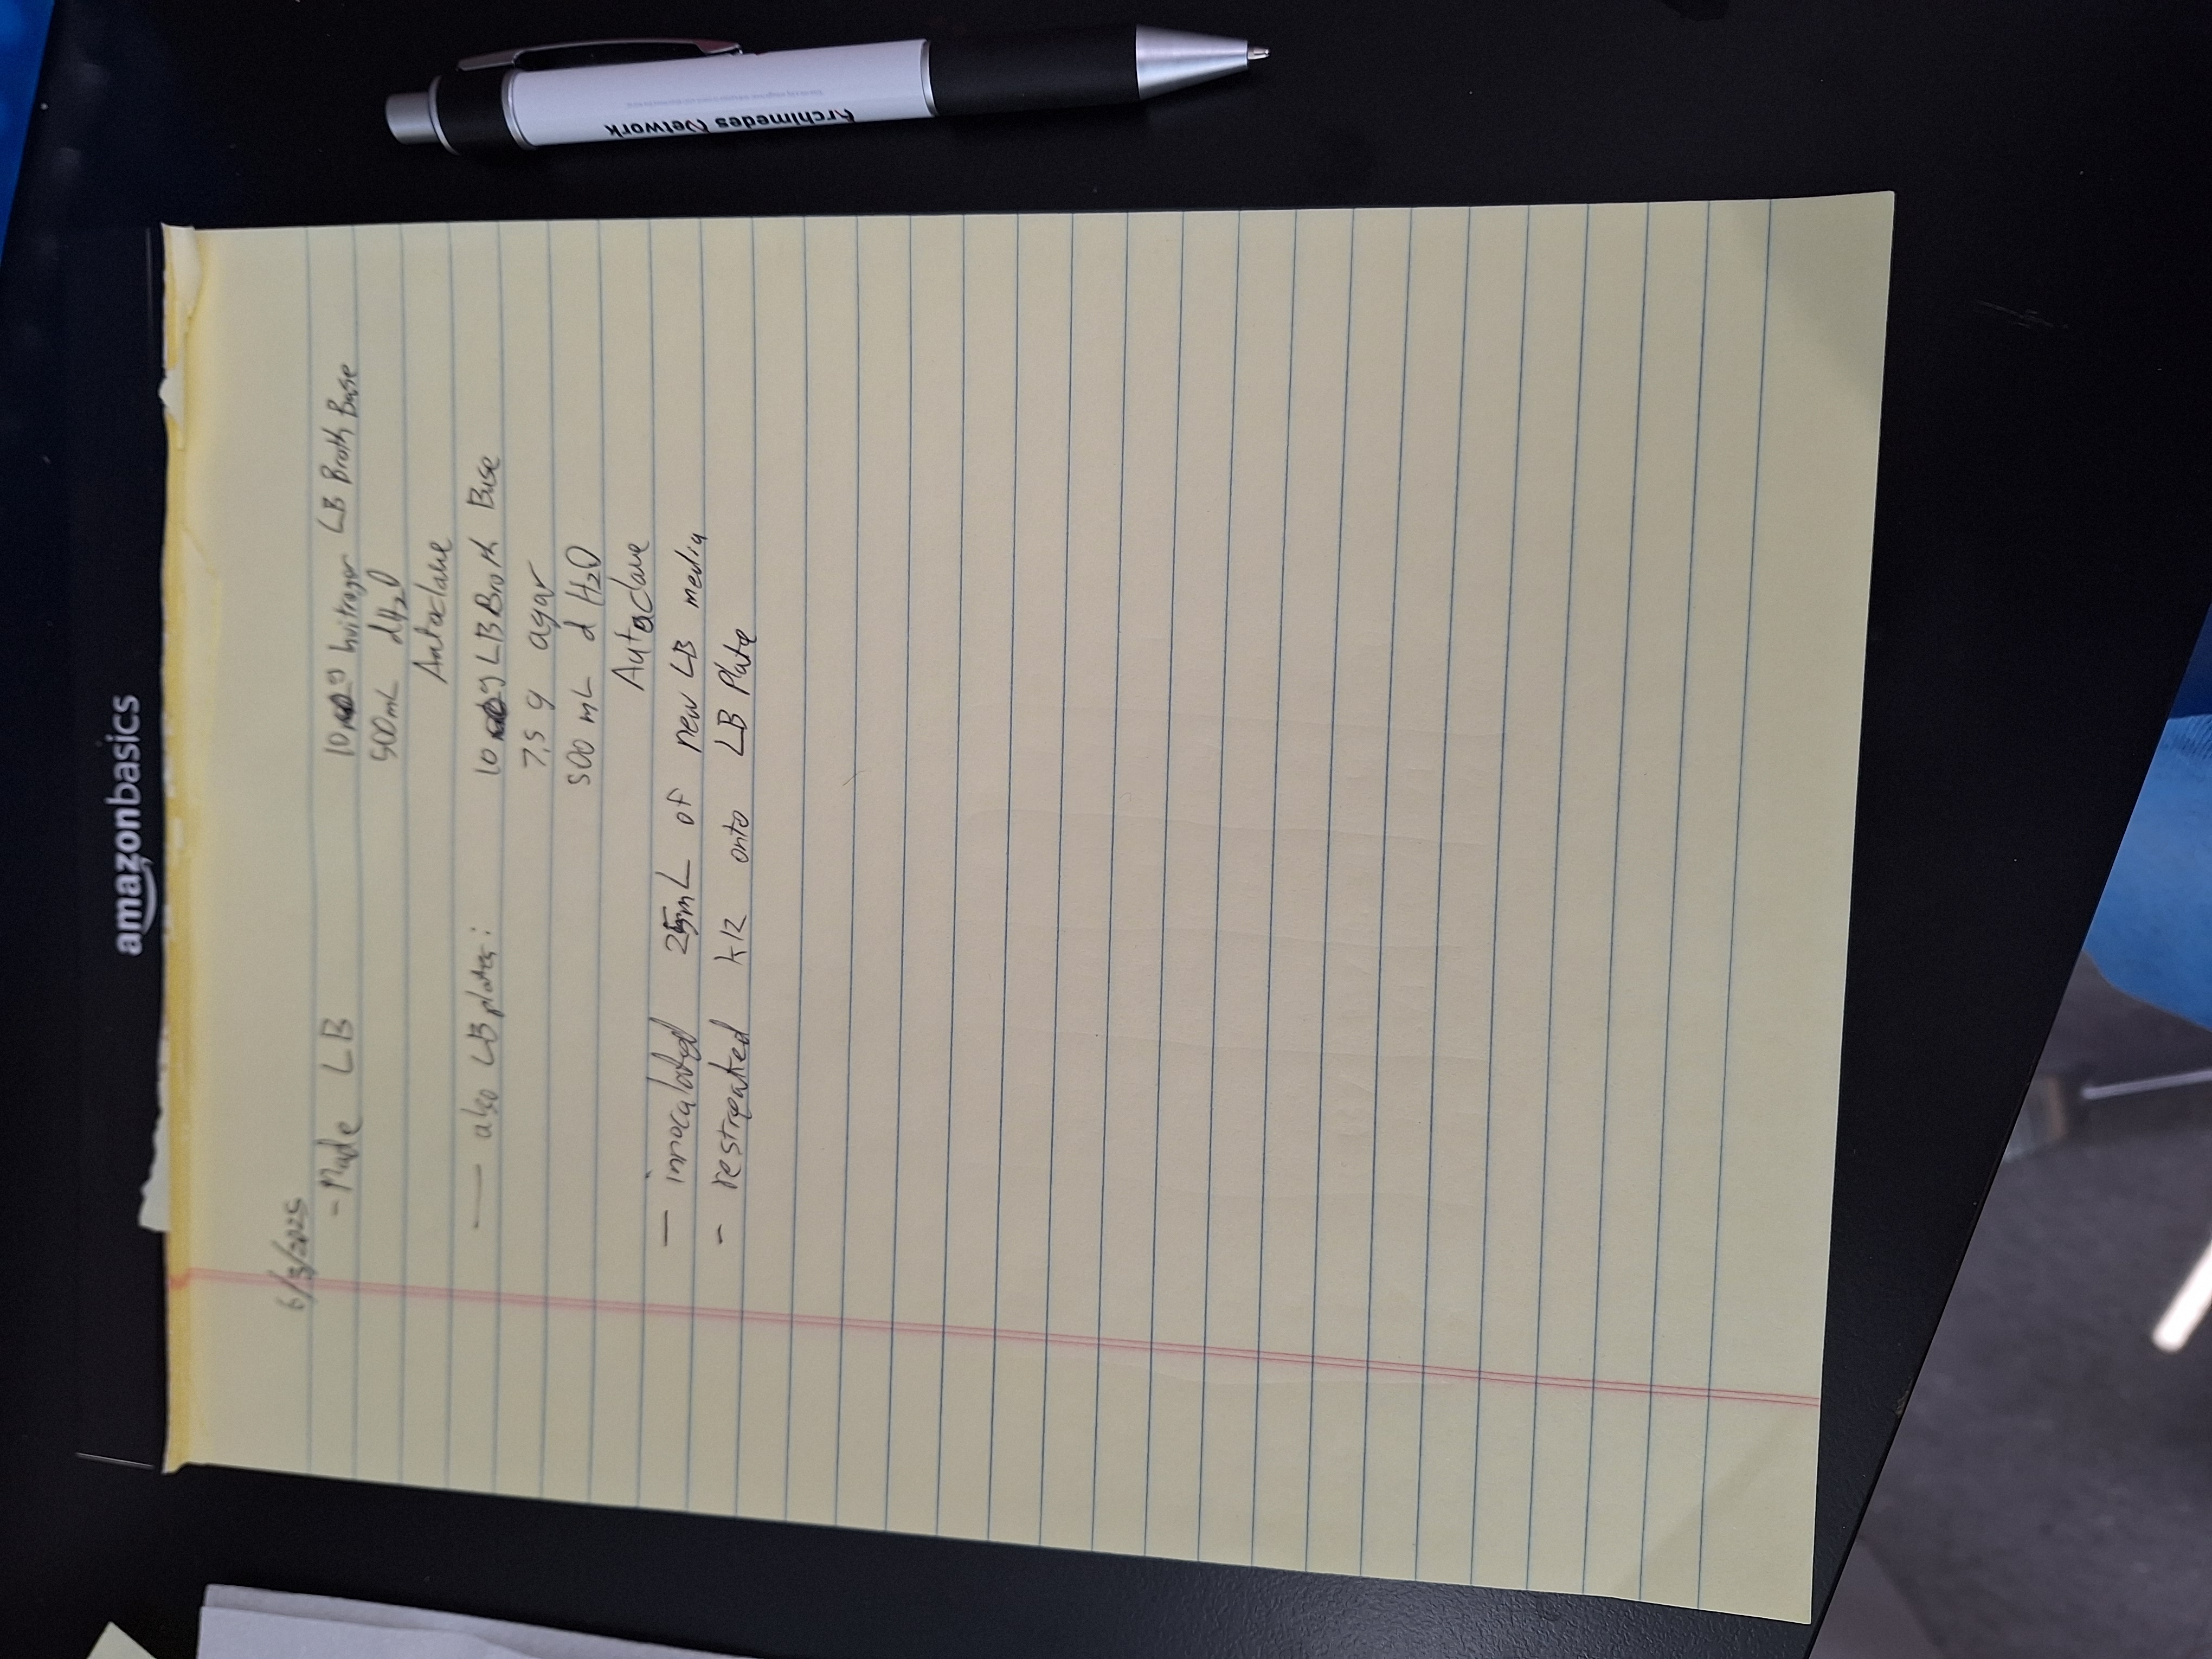 amazonbasics
6/3/2025
- Made LB 10 g Invitrogen LB Broth Base
500mL dH2O
Autoclave
— also LB plates: 10 g LB Broth Base
7.5 g agar
500 mL dH2O
Autoclave
— innoculated 25mL of new LB media
- restreaked k12 onto LB Plate
Archimedes Network